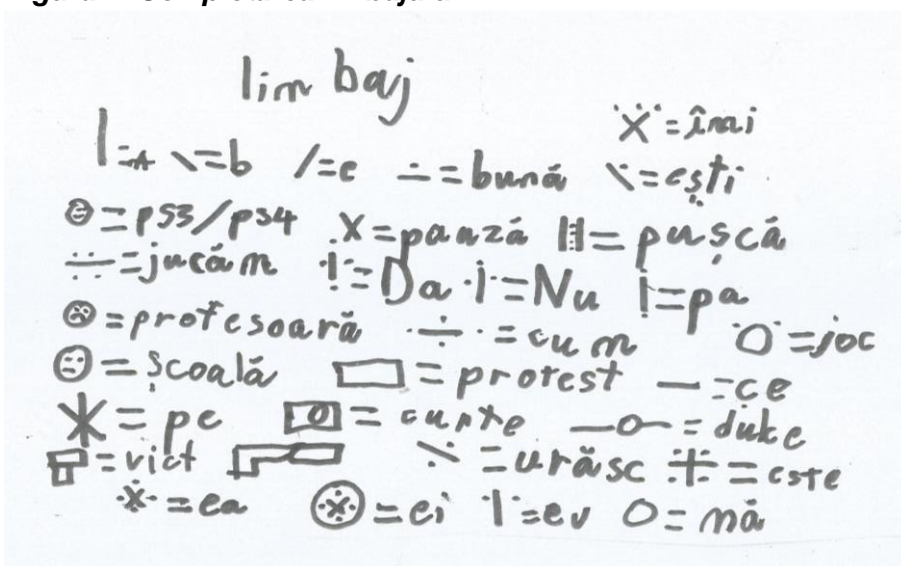 lim baj
=înai
=A =b /=c =buná =ești
=ps3/ps4 .X=panzá =pușcá
=jucám =Da =Nu =pa
=profesoará =cum =joc
=școalá =protest —=ce
=pe =curte —o—=duke
=vict =urăsc =este
=ea =ei =eu O=má